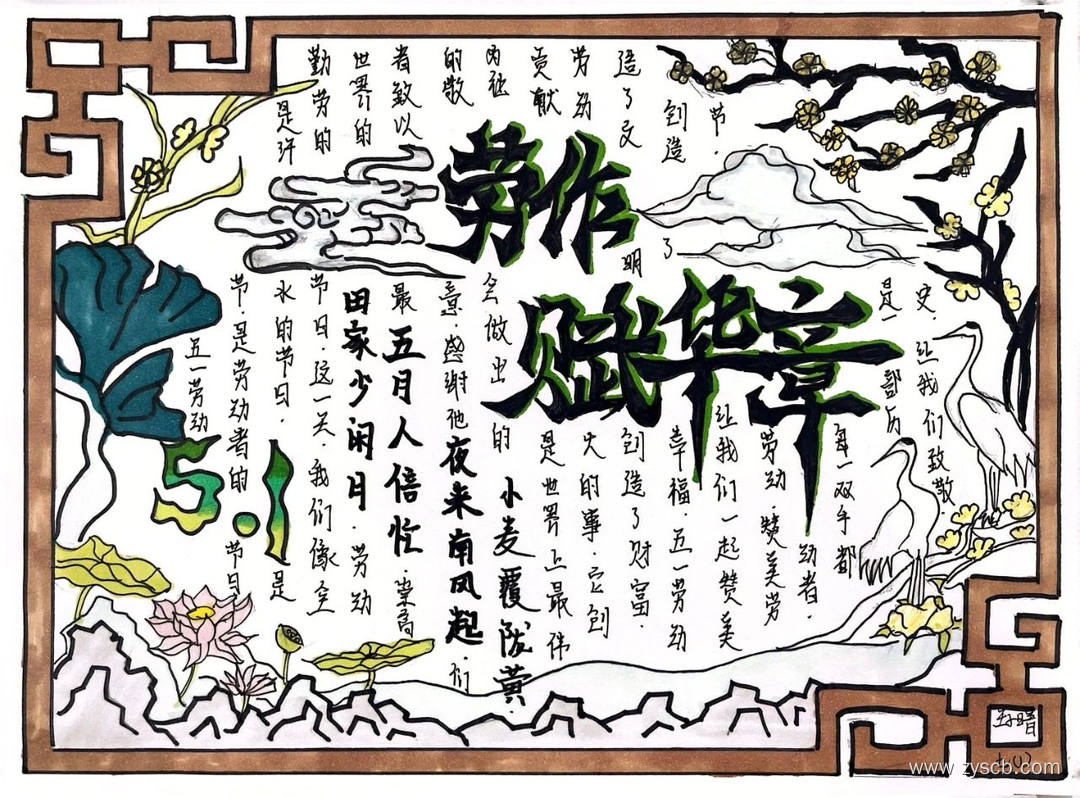 劳作
赋华章
5.1
五一劳动
节.是劳动者的节日
是许水的节日.是
勤劳的节日.这一天.我们像全
世界的
田家少闲月.
劳动
者致以最
五月人倍忙.
崇高
的敬意.感谢他
夜来南风起.
们
会做出的
小麦覆陇黄.
贡献是世界上最伟
劳动大的事.它创
造了文明创造了财富.
创造了幸福.五一劳动
节.让我们一起赞美
劳动.赞美劳
动者.
每一双手都
是一部历
史.让我们致敬.
www.zyscb.com